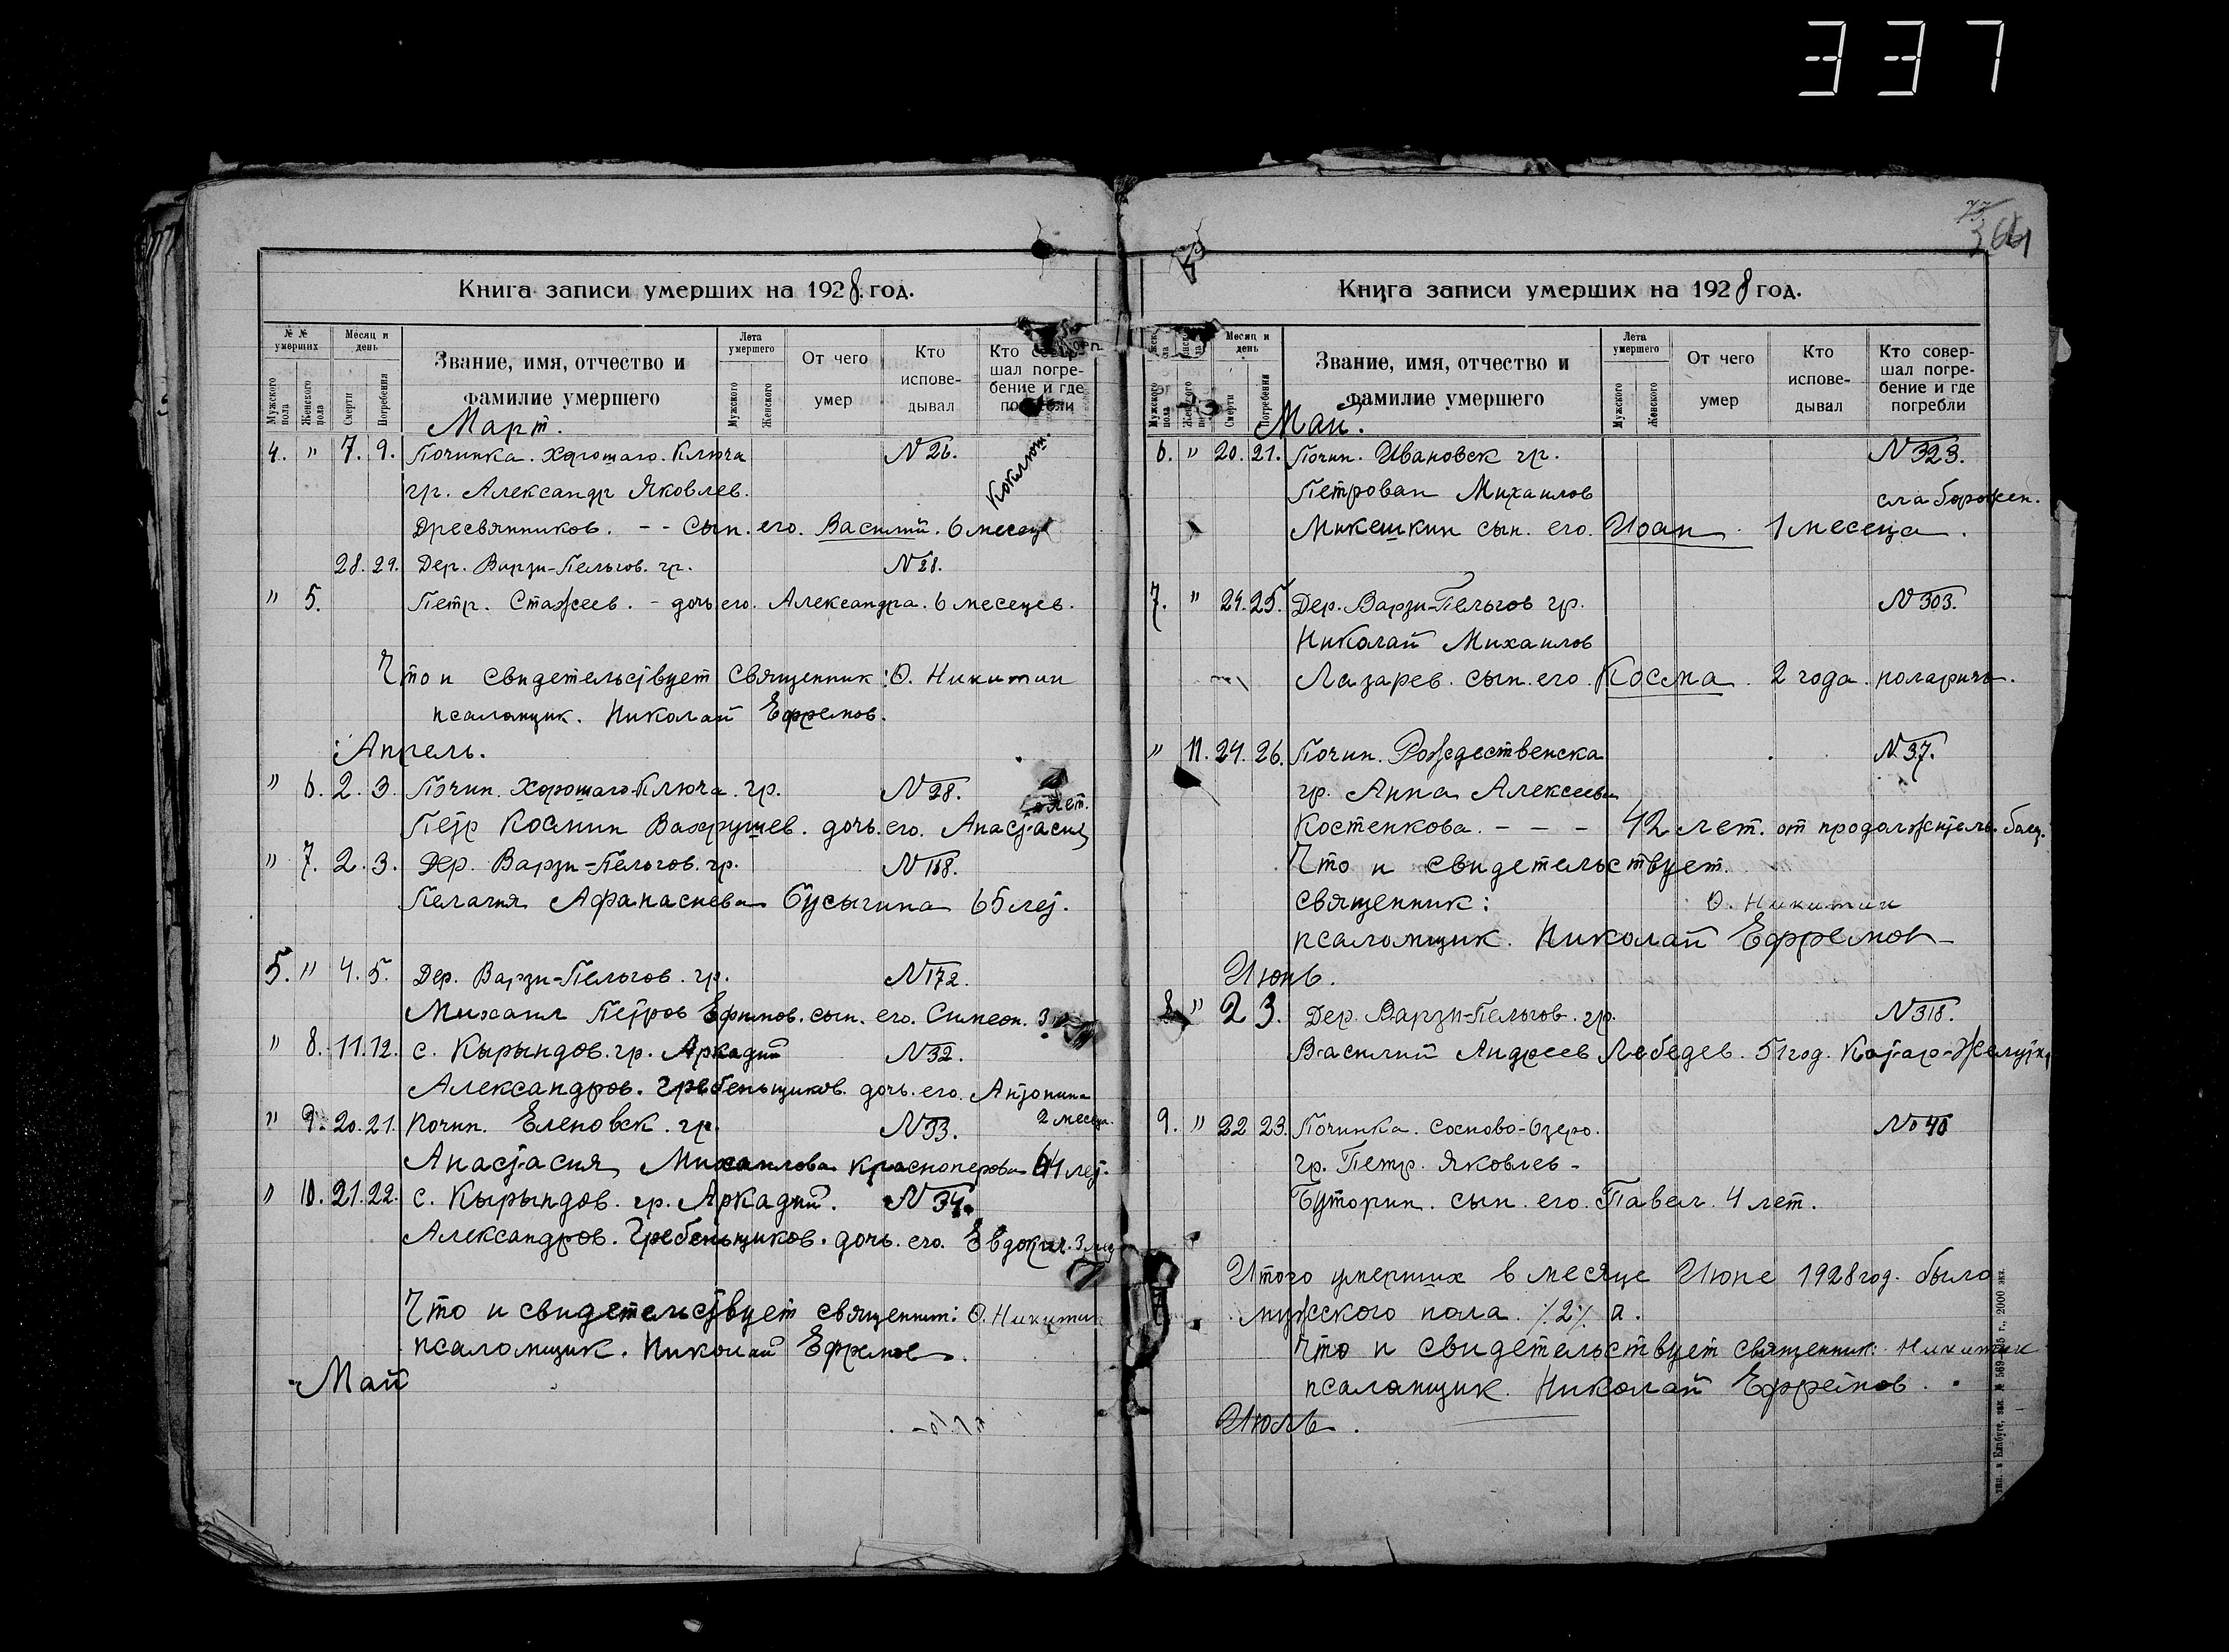 337
Книга записи умерших на 1928 год.
№ № умерших
Месяц и день
Звание, имя, отчество и фамилие умершего
Лета умершего
От чего умер
Кто исповедывал
Кто совершал погребение и где погребли
Мужского пола
Женского пола
Смерти
Погребения
Мужского
Женского
Март.
4. " 7. 9. Починка. Хорошаго. Ключа N 26.
гр. Александр Яковлев. Коклюш.
Дресвянников. - - сын. его. Василий. 6 месец
28. 29. Дер. Варзи-Пельгов. гр. N 28.
" 5. Петр. Стажеев. - дочь его. Александра. 6 месецев.
Что и свидетельствует священник: О. Никитин
псаломщик. Николай Ефремов.
Апрель.
" 6. 2. 3. Почин. Хорошаго-Ключа. гр. N 28.
лет.
Петр Космин Вахрушев. дочь. его. Анастасия
" 7. 2. 3. Дер. Варзи-Пельгов. гр. N 168.
Пелагия Афанасиева Бусыгина 65 лет.
5. " 4. 5. Дер. Варзи-Пельгов. гр. N 172.
Михаил Петров Ефимов. сын. его. Симеон. 3
" 8. 11. 12. с. Кырындов. гр. Аркадий N 32.
Александров. Гребеньщиков. дочь. его. Антонина
2 месеца.
" 9. 20. 21. Почин. Еленовск. гр. N 33.
Анастасия Михаилова Красноперова 64 лет.
" 10. 21. 22. с. Кырындов. гр. Аркадий. N 34.
Александров. Гребеньщиков. дочь. его. Евдокия. 3
Что и свидетельствует священник: О. Никитин
псаломщик. Николай Ефремов.
Май
Книга записи умерших на 1928 год.
Месяц и день
Звание, имя, отчество и фамилие умершего
Лета умершего
От чего умер
Кто исповедывал
Кто совершал погребение и где погребли
Мужского пола
Смерти
Погребения
Мужского
Женского
Май.
6. " 20. 21. Почин. Ивановск гр. N 323.
Петрован Михаилов слаборожен.
Микешкин сын. его. Иоан 1 месеца.
7. " 24. 25. Дер. Варзи-Пельгов гр. N 303.
Николай Михаилов
Лазарев. сын. его. Косма. 2 года.
" 11. 24. 26. Почин. Рождественска N 37.
гр. Анна Алексеева
Костенкова. - - - 42 лет. от продолжитель. болез.
Что и свидетельствует.
священник: О. Никитин
псаломщик. Николай Ефремов
Июнь.
8. " 2 3. Дер. Варзи-Пельгов. гр. N 318.
Василий Андреев Лебедев. 51 год. Катар-Желудка
9. " 22 23. Починка. Сосново-Озеро. No 40
гр. Петр. Яковлев -
Буторин. сын. его. Павел. 4 лет.
Итого умерших в месяце Июне 1928 год. было
мужского пола. /.2/.
Что и свидетельствует священник: Никитин
псаломщик. Николай Ефремов.
Июль.
тип. в Елабуге, зак. № 569-1925 г., 2000 экз.